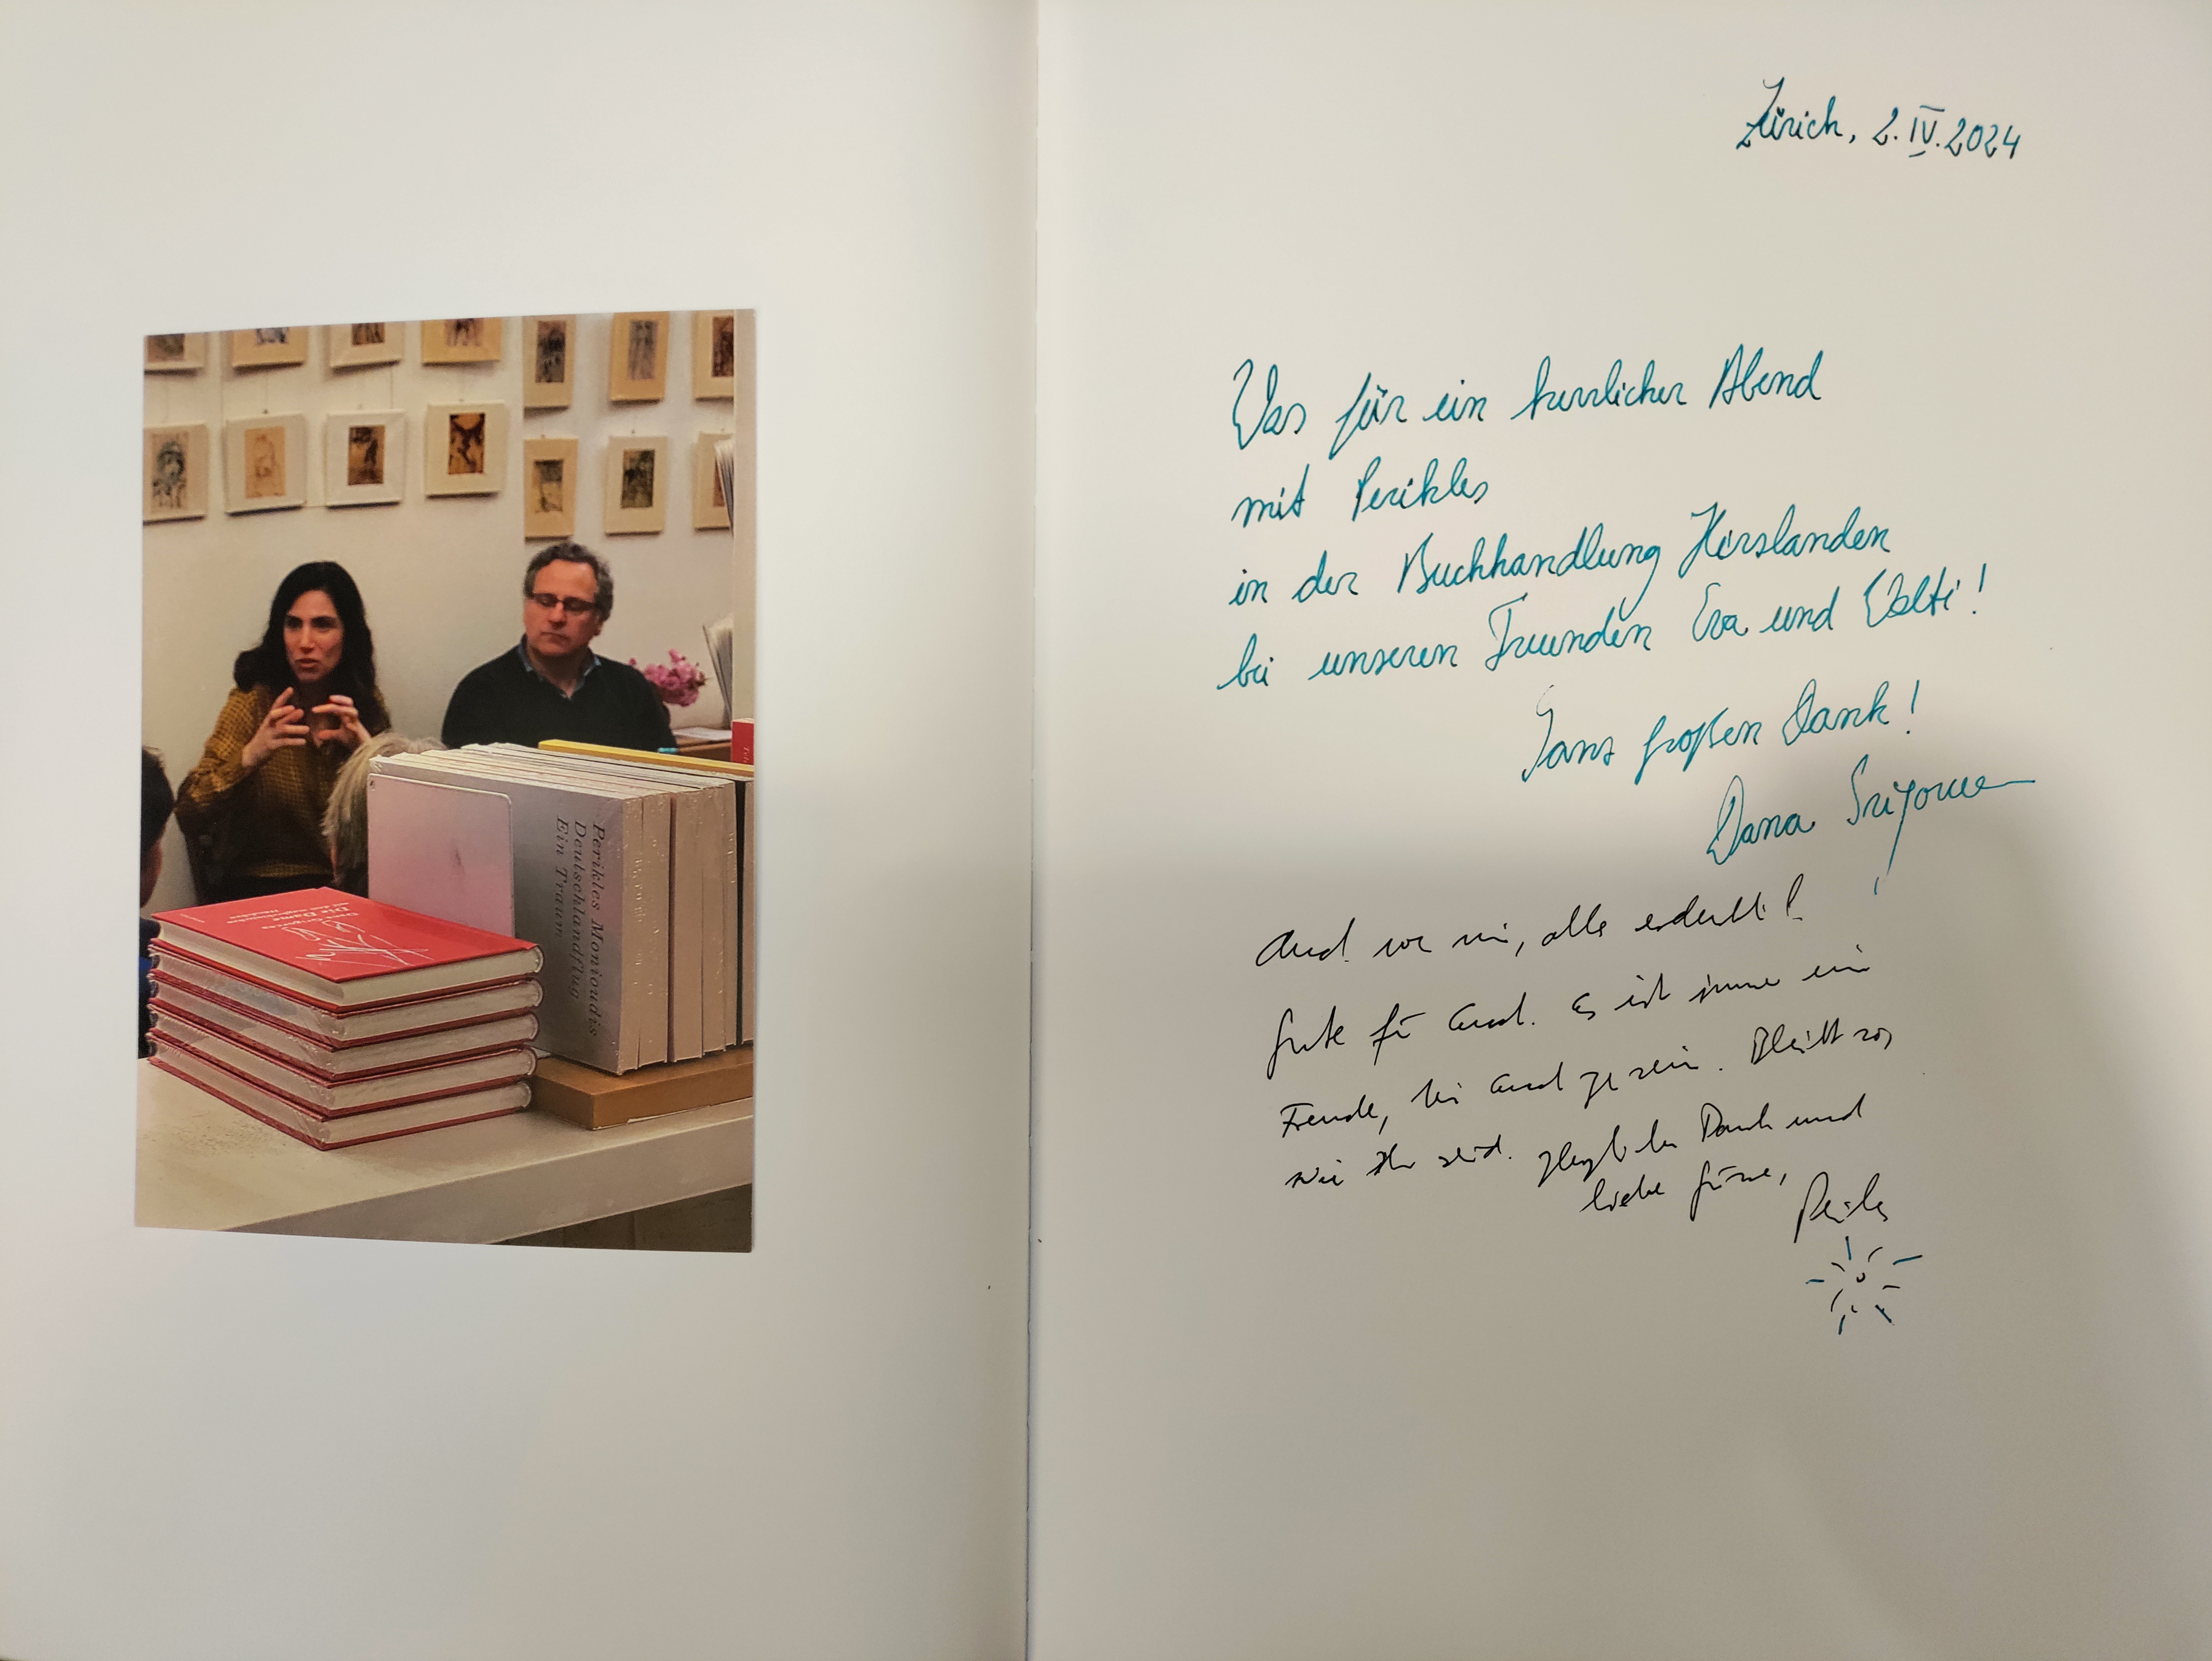 Dana Grigorcea
Die Dame
Perikles Monioudis
Deutschlandflug
Ein Traum
Zürich, 2. IV. 2024
Was für ein herrlicher Abend
mit Perikles
in der Buchhandlung Hirslanden
bei unseren Freunden Eva und Valti!
Ganz großen Dank!
Dana Grigorcea
und wie nie, alle
Gute für Euch. Es ist immer ein
Freude, bei Euch zu sein. Bleibt so,
wie Ihr seid. Herzlichen Dank und
liebe Grüsse,
Perikles